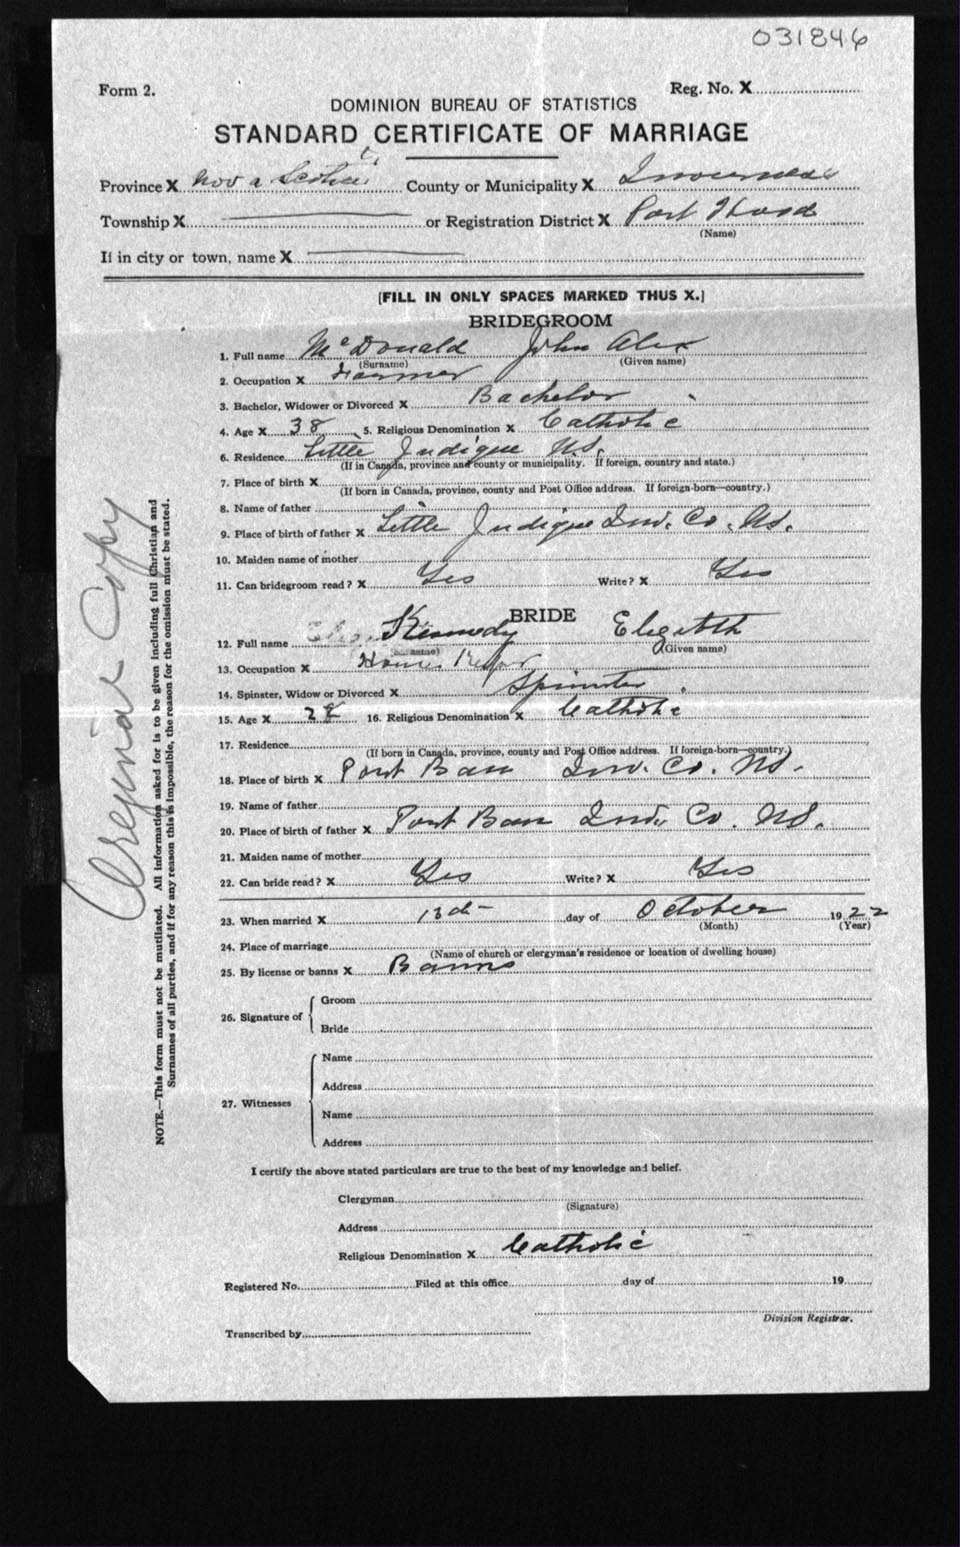 031846
Form 2.
Reg. No. X
DOMINION BUREAU OF STATISTICS
STANDARD CERTIFICATE OF MARRIAGE
Province X Nova Scotia County or Municipality X Inverness
Township X or Registration District X Port Hood
(Name)
If in city or town, name X
[FILL IN ONLY SPACES MARKED THUS X.]
BRIDEGROOM
1. Full name McDonald John Alex
(Surname) (Given name)
2. Occupation X Farmer
3. Bachelor, Widower or Divorced X Bachelor
4. Age X 38 5. Religious Denomination X Catholic
6. Residence Little Judique NS.
(If in Canada, province and county or municipality. If foreign, country and state.)
7. Place of birth X
(If born in Canada, province, county and Post Office address. If foreign-born—country.)
8. Name of father
9. Place of birth of father X Little Judique Inv. Co. NS.
10. Maiden name of mother
11. Can bridegroom read? X Yes Write? X Yes
BRIDE
12. Full name Kennedy
(Surname) (Given name)
13. Occupation X House
14. Spinster, Widow or Divorced X Spinster
15. Age X 16. Religious Denomination X Catholic
17. Residence
(If born in Canada, province, county and Post Office address. If foreign-born—country.)
18. Place of birth X Port Ban Inv. Co. NS.
19. Name of father
20. Place of birth of father X Port Ban Inv. Co. NS.
21. Maiden name of mother
22. Can bride read? X Yes Write? X Yes
23. When married X day of October 1922
(Month) (Year)
24. Place of marriage
(Name of church or clergyman's residence or location of dwelling house)
25. By license or banns X Banns
26. Signature of
Groom
Bride
27. Witnesses
Name
Address
Name
Address
I certify the above stated particulars are true to the best of my knowledge and belief.
Clergyman
(Signature)
Address
Religious Denomination X Catholic
Registered No. Filed at this office day of 19
Division Registrar.
Transcribed by
Original Copy
NOTE.—This form must not be mutilated. All information asked for is to be given including full Christian and
Surnames of all parties, and if for any reason this is impossible, the reason for the omission must be stated.